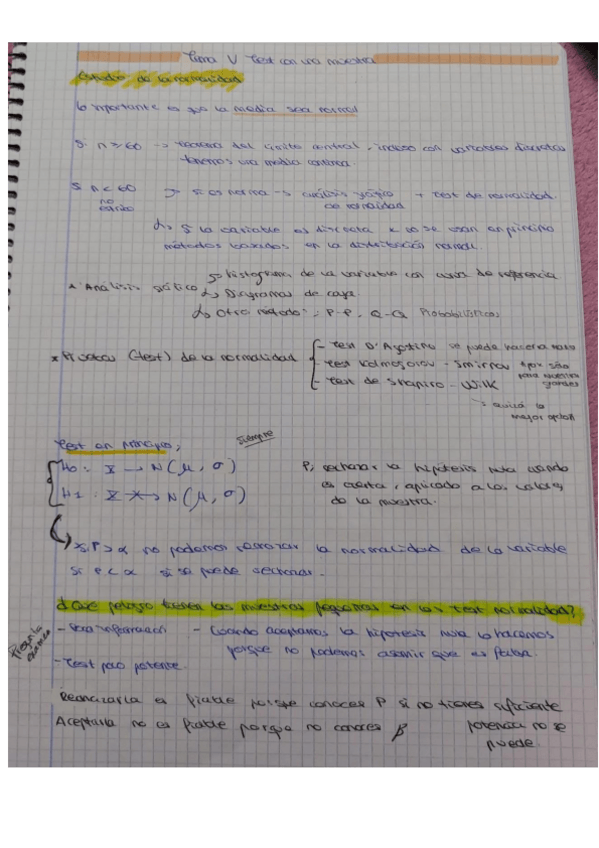 Tema V Test con una muestra
Estudio de la normalidad
lo importante es que la media sea normal
Si n ≥ 60 → Teorema del límite central, incluso con variables discretas
tenemos una media continua.
Si n < 60 → si es norma → análisis gráfico + Test de normalidad.
no
de normalidad
↳ Si la variable es discreta no se usan en principio
métodos basados en la distribución normal.
* Análisis gráfico
↳ histograma de la variable con curva de referencia
↳ Diagramas de caja.
↳ Otro método: P-P, Q-Q Probabilísticos
* Pruebas (test) de la normalidad
- Test D'Agostino se puede hacer a mano
- Test Kolmogorov - Smirnov solo
para muestras grandes
- Test de Shapiro - Wilk
→ quizá la
mejor opción
Test en principio,
siempre
H0: X → N(μ, σ)
H1: X ↛ N(μ, σ)
P, rechazar la hipótesis nula cuando
es cierta, aplicado a los valores
de la muestra.
* si P > α no podemos rechazar la normalidad de la variable
si P < α si se puede rechazar.
¿Qué peligro tienen las muestras pequeñas en los test normalidad?
Pregunta
examen
- Poca información
- Cuando aceptamos la hipótesis nula lo hacemos
porque no podemos asumir que es falsa.
- Test poco potente.
Rechazarla es fiable porque conoces P si no tienes suficiente
Aceptarla no es fiable porque no conoces β
potencia no se
puede.